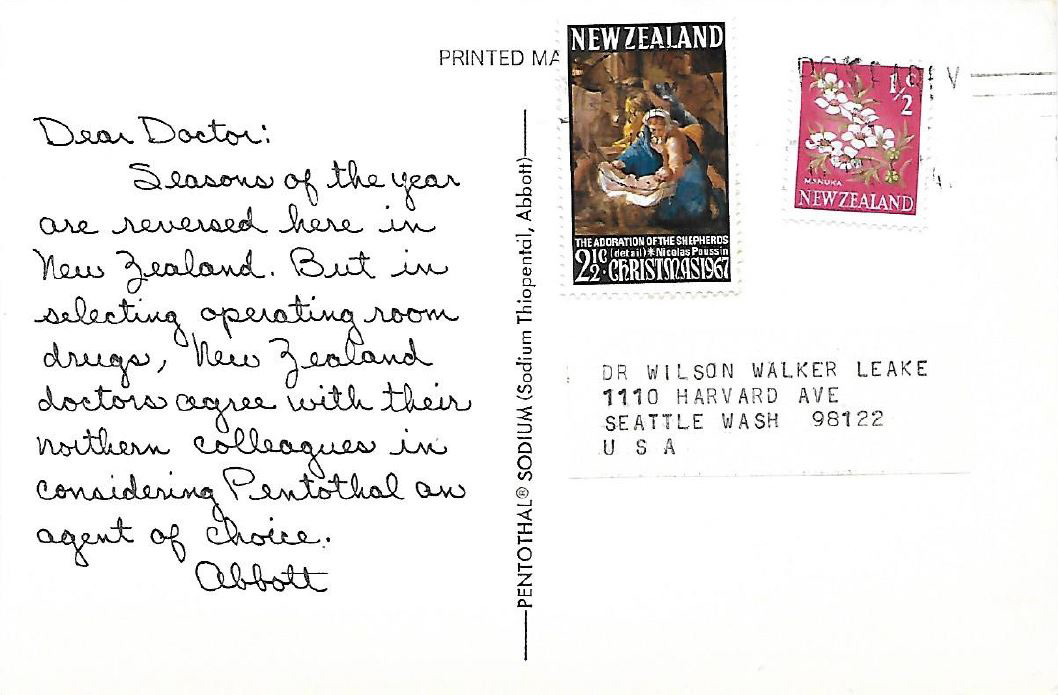 PRINTED MA
NEW ZEALAND
THE ADORATION OF THE SHEPHERDS
(detail)*Nicolas Poussin
2½c·CHRISTMAS 1967
½c
MANUKA
NEW ZEALAND
Dear Doctor:
Seasons of the year
are reversed here in
New Zealand. But in
selecting operating room
drugs, New Zealand
doctors agree with their
northern colleagues in
considering Pentothal an
agent of choice.
Abbott
PENTOTHAL® SODIUM (Sodium Thiopental, Abbott)
DR WILSON WALKER LEAKE
1110 HARVARD AVE
SEATTLE WASH 98122
U S A